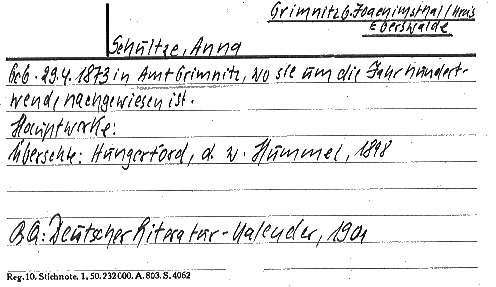 Grimnitz b. Joachimsthal/Kreis
Eberswalde
Schultze, Anna
Geb. 29.4.1873 in Amt Grimnitz, wo sie um die Jahrhundert-
wende nachgewiesen ist.
Hauptwerke:
Übersetz.: Hungerford, d. w. Hummel, 1898
BQ: Deutscher Literatur-Kalender, 1901
Reg. 10. Stichnote. 1. 50. 232000. A. 803. S. 4062